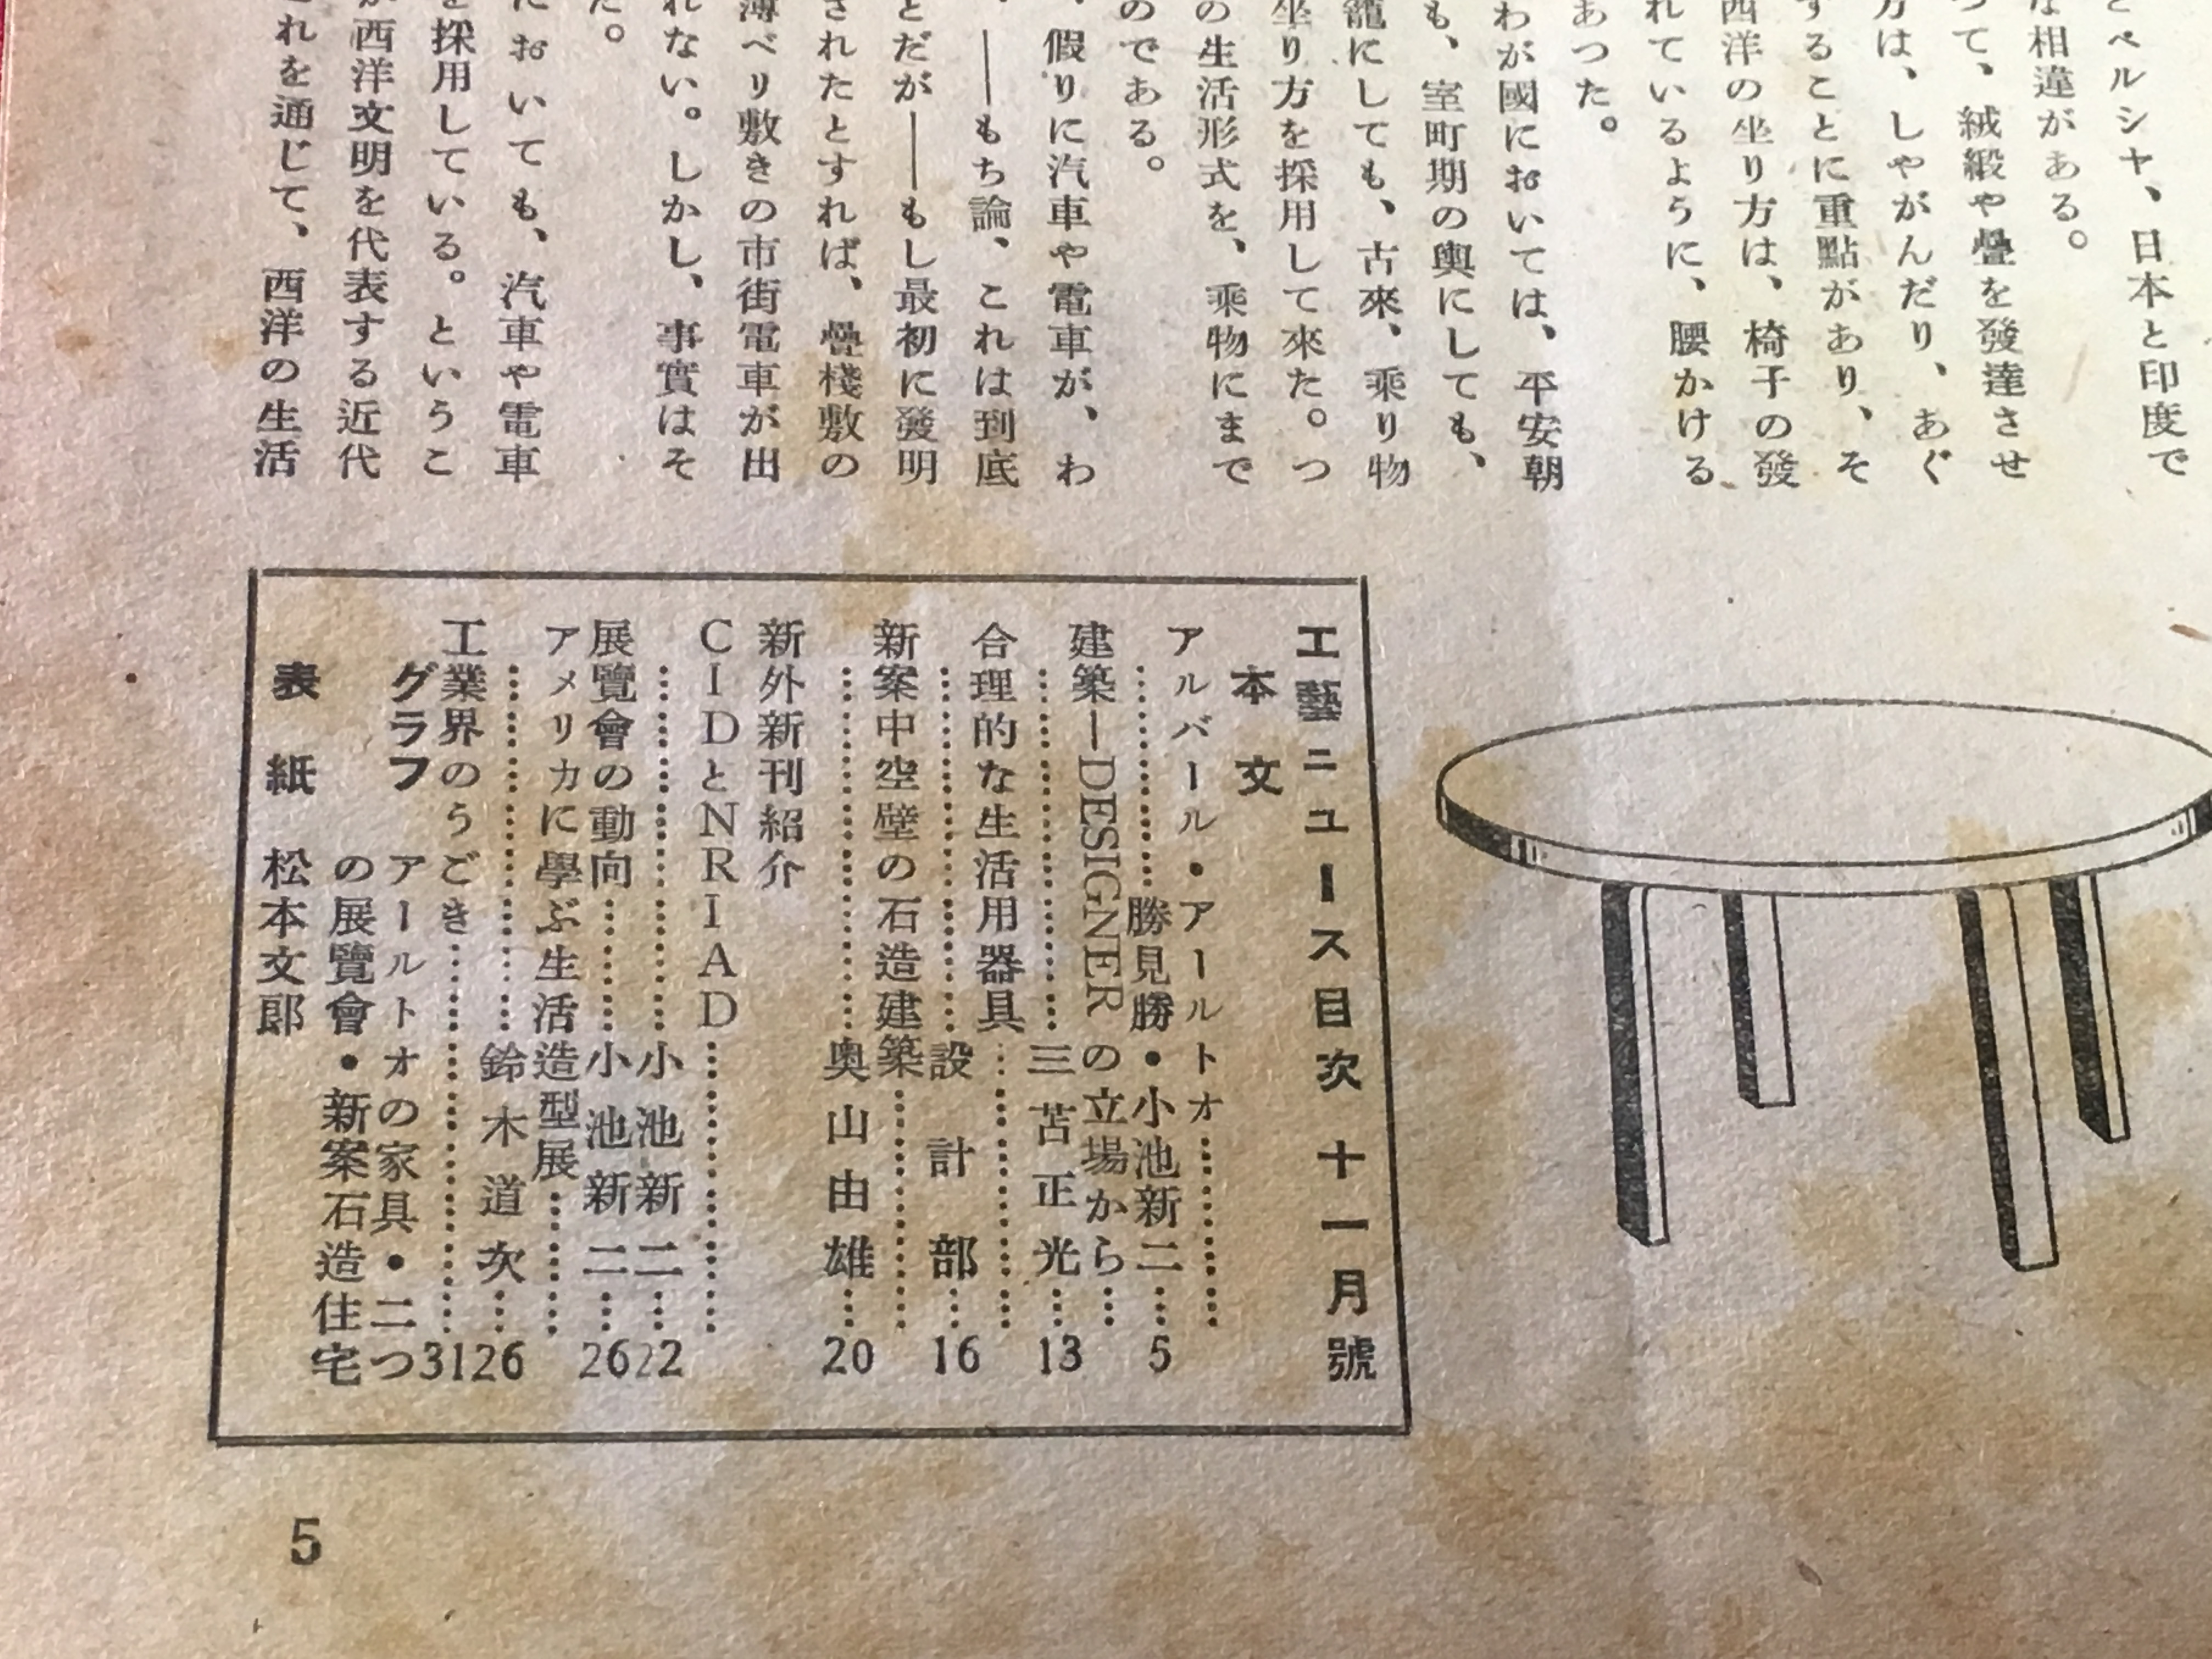 とペルシヤ、日本と印度で
な相違がある。
つて、絨緞や疊を發達させ
方は、しやがんだり、あぐ
することに重點があり、そ
西洋の坐り方は、椅子の發
れているように、腰かける
あつた。
わが國においては、平安朝
も、室町期の輿にしても、
籠にしても、古來、乘り物
坐り方を採用して來た。つ
の生活形式を、乘物にまで
のである。
假りに汽車や電車が、わ
――もち論、これは到底
とだが――もし最初に發明
されたとすれば、疊棧敷の
薄ベリ敷きの市街電車が出
れない。しかし、事實はそ
た。
においても、汽車や電車
を採用している。というこ
が西洋文明を代表する近代
これを通じて、西洋の生活
工藝ニュース目次 十一月號
本文
アルバール・アールトオ…………
…………勝見勝・小池新二……5
建築―DESIGNERの立場から……
…………三苫正光……13
合理的な生活用器具…………
…………設計部……16
新案中空壁の石造建築…………
…………奥山由雄……20
新外新刊紹介
CIDとNRIAD…………
…………小池新二……22
展覽會の動向……小池新二……26
アメリカに學ぶ生活造型展……
…………鈴木道次……26
工業界のうごき…………31
グラフ アールトオの家具・二つ
の展覽會・新案石造住宅
表紙 松本文郎
5